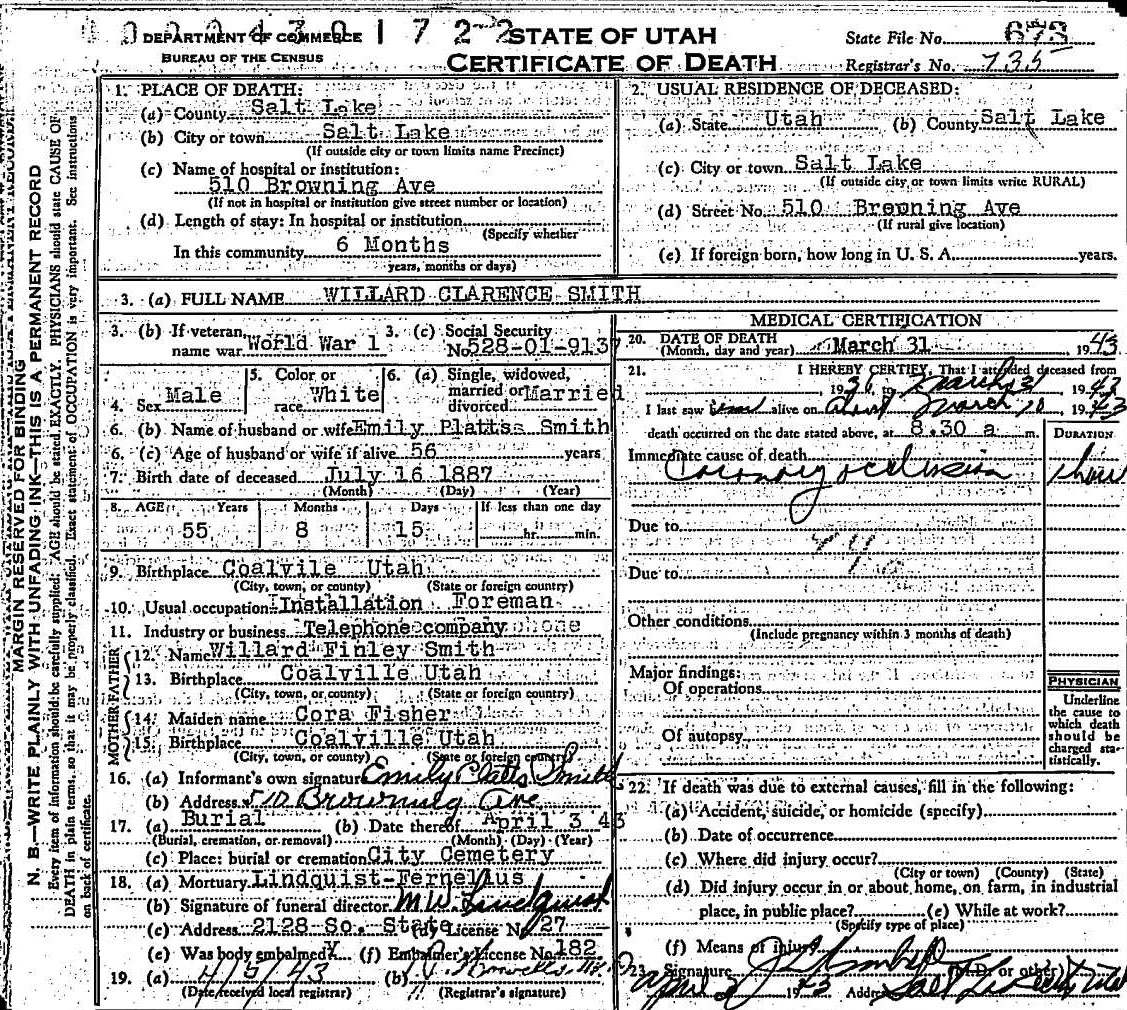 DEPARTMENT OF COMMERCE
BUREAU OF THE CENSUS
STATE OF UTAH
CERTIFICATE OF DEATH
State File No. 673
Registrar's No. 735
MARGIN RESERVED FOR BINDING
N. B.—WRITE PLAINLY WITH UNFADING INK—THIS IS A PERMANENT RECORD
Every item of information should be carefully supplied. AGE should be stated EXACTLY. PHYSICIANS should state CAUSE OF
DEATH in plain terms, so that it may be properly classified. Exact statement of OCCUPATION is very important. See instructions
on back of certificate.
1. PLACE OF DEATH:
(a) County Salt Lake
(b) City or town Salt Lake
(If outside city or town limits name Precinct)
(c) Name of hospital or institution:
510 Browning Ave
(If not in hospital or institution give street number or location)
(d) Length of stay: In hospital or institution
(Specify whether
In this community 6 Months
years, months or days)
2. USUAL RESIDENCE OF DECEASED:
(a) State Utah (b) County Salt Lake
(c) City or town Salt Lake
(If outside city or town limits write RURAL)
(d) Street No. 510 Browning Ave
(If rural give location)
(e) If foreign born, how long in U. S. A. years.
3. (a) FULL NAME WILLARD CLARENCE SMITH
3. (b) If veteran, name war World War 1 3. (c) Social Security No. 528-01-9137
4. Sex Male 5. Color or race White 6. (a) Single, widowed, married or divorced Married
6. (b) Name of husband or wife Emily Platts Smith
6. (c) Age of husband or wife if alive 56 years
7. Birth date of deceased July 16 1887
(Month) (Day) (Year)
8. AGE Years Months Days If less than one day
55 8 15 hr. min.
9. Birthplace Coalvile Utah
(City, town, or county) (State or foreign country)
10. Usual occupation Installation Foreman
11. Industry or business Telephone company
FATHER
12. Name Willard Finley Smith
13. Birthplace Coalville Utah
(City, town, or county) (State or foreign country)
MOTHER
14. Maiden name Cora Fisher
15. Birthplace Coalville Utah
(City, town, or county) (State or foreign country)
16. (a) Informant's own signature Emily Platts Smith
(b) Address 510 Browning Ave
17. (a) Burial (b) Date thereof April 3 43
(Burial, cremation, or removal) (Month) (Day) (Year)
(c) Place: burial or cremation City Cemetery
18. (a) Mortuary Lindquist-Fernelius
(b) Signature of funeral director M.W. Lindquist
(c) Address 2128 So. State (d) License No. 27
(e) Was body embalmed Y (f) Embalmer's License No. 182
19. (a) 4/5/43 (b)
(Date received local registrar) (Registrar's signature)
MEDICAL CERTIFICATION
20. DATE OF DEATH
(Month, day and year) March 31 1943
21. I HEREBY CERTIFY, That I attended deceased from
1936 to March 31 1943
I last saw him alive on about March 10 1943
death occurred on the date stated above, at 8.30 a m.
DURATION
Immediate cause of death
Coronary occlusion 1 hour
Due to
Due to
Other conditions
(Include pregnancy within 3 months of death)
Major findings:
Of operations
Of autopsy
PHYSICIAN
Underline
the cause to
which death
should be
charged sta-
tistically.
22. If death was due to external causes, fill in the following:
(a) Accident, suicide, or homicide (specify)
(b) Date of occurrence
(c) Where did injury occur?
(City or town) (County) (State)
(d) Did injury occur in or about home, on farm, in industrial
place, in public place? (e) While at work?
(Specify type of place)
(f) Means of injury
23. Signature (M.D. or other)
April 2 1943 Address Salt Lake City Utah